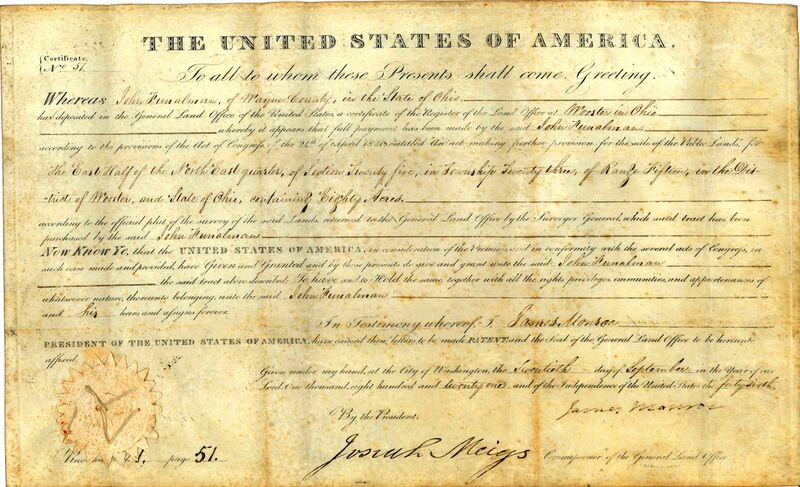 THE UNITED STATES OF AMERICA.
Certificate
No. 51
To all to whom these Presents shall come, Greeting.
Whereas John Funalman, of Wayne County, in the State of Ohio
has deposited in the General Land Office of the United States, a certificate of the Register of the Land Office at Wooster in Ohio
whereby it appears that full payment has been made by the said John Funalman
according to the provisions of the Act of Congress of the 24th of April 1820, entitled An act making further provision for the sale of the Public Lands, for
The East Half of the North East quarter, of Section Twenty five, in Township Twenty three, of Range Fifteen, in the Dis-
trict of Wooster, and State of Ohio, containing Eighty Acres
according to the official plat of the survey of the said Lands, returned to the General Land Office by the Surveyor General, which said tract has been
purchased by the said John Funalman
Now Know Ye, that the UNITED STATES OF AMERICA, in consideration of the Premises, and in conformity with the several acts of Congress, in
such case made and provided, have Given and Granted and by these presents do give and grant unto the said John Funalman
the said tract above described: To have and to Hold the same, together with all the rights, privileges, immunities, and appurtenances of
whatsoever nature, thereunto belonging, unto the said John Funalman
and his heirs and assigns forever.
In Testimony whereof, I James Monroe
PRESIDENT OF THE UNITED STATES OF AMERICA, have caused these letters to be made PATENT, and the Seal of the General Land Office to be hereunto
affixed.
Given under my hand, at the City of Washington, the Twentieth day of September in the Year of our
Lord, One thousand, eight hundred and twenty one and of the Independence of the United States the forty sixth
James Monroe
By the President.
Josiah Meigs Commissioner of the General Land Office
page 51.